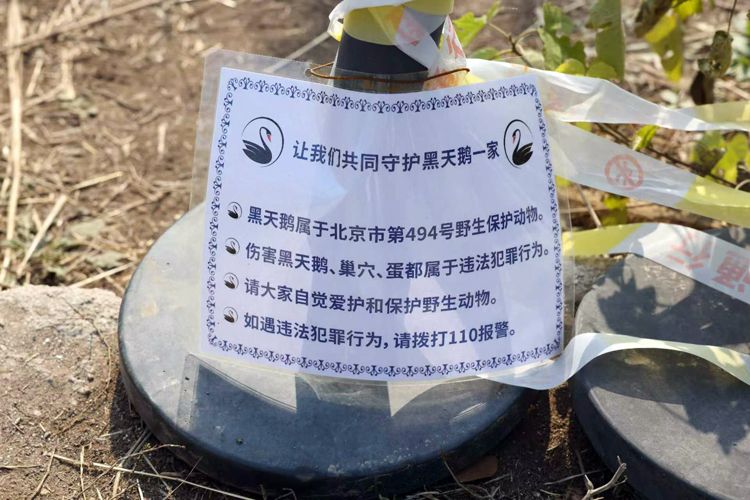 让我们共同守护黑天鹅一家
黑天鹅属于北京市第494号野生保护动物。
伤害黑天鹅、巢穴、蛋都属于违法犯罪行为。
请大家自觉爱护和保护野生动物。
如遇违法犯罪行为，请拨打110报警。